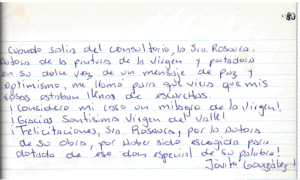 80
Cuando salía del consultorio, la Sra. Rosaura.
autora de la pintura de la Virgen y portadora
en su dulce voz de un mensaje de paz y
optimismo, me llamó para que viera que mis
rosas estaban llenas de escarchas.
¡Considero mi caso un milagro de la Virgen!
¡Gracias Santísima Virgen del Valle!
¡Felicitaciones, Sra. Rosaura, por la autora
de su obra, por haber sido escogida para
dotada de ese don especial de su palabra!
González